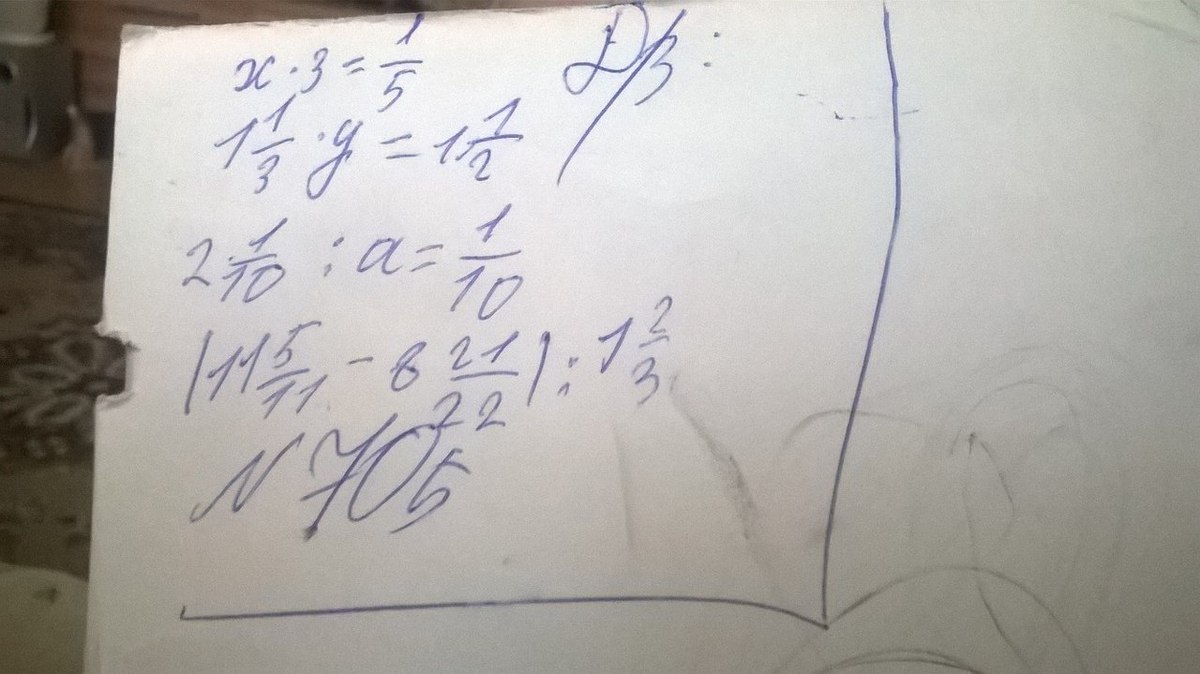 x · 3 = 1/5
Д/З:
1 1/3 · y = 1 1/2
2 1/10 : a = 1/10
(11 5/11 - 8 21/22) : 1 2/3
N 705